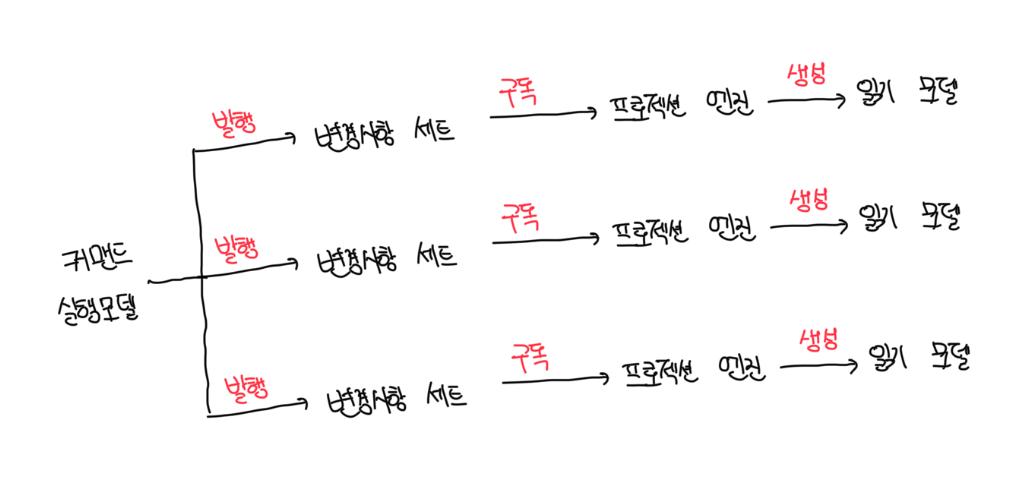 발행
변경사항 세트
구독
프로젝션 엔진
생성
읽기 모델
커맨드
실행모델
발행
변경사항 세트
구독
프로젝션 엔진
생성
읽기 모델
발행
변경사항 세트
구독
프로젝션 엔진
생성
읽기 모델